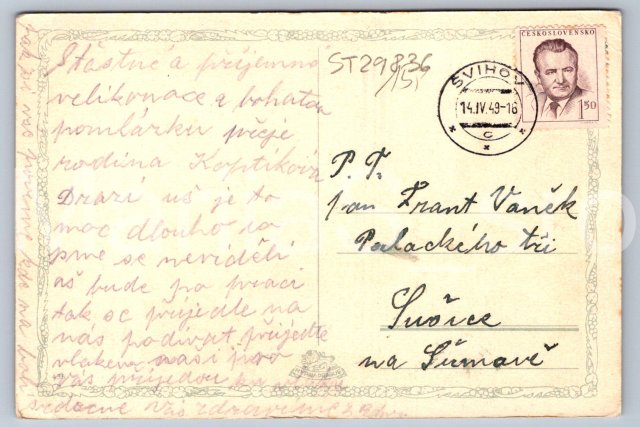 Šťastné a příjemné
velikonoce a bohatou
pomlásku přeje
rodina Koptíkova
Drazí uš je to
moc dlouho co
sme se neviděli
aš bude po práci
tak se přijedte na
nás podívat přijedte
vlakem naši pro
vás přijedou
srdečne vás zdravíme
ST29836
15,-
SVIHOV
14.IV.49-18
C
ČESKOSLOVENSKO
1.50
P. T.
pan Frant Vaněk
Palackého tři
Sušice
na Šumavě